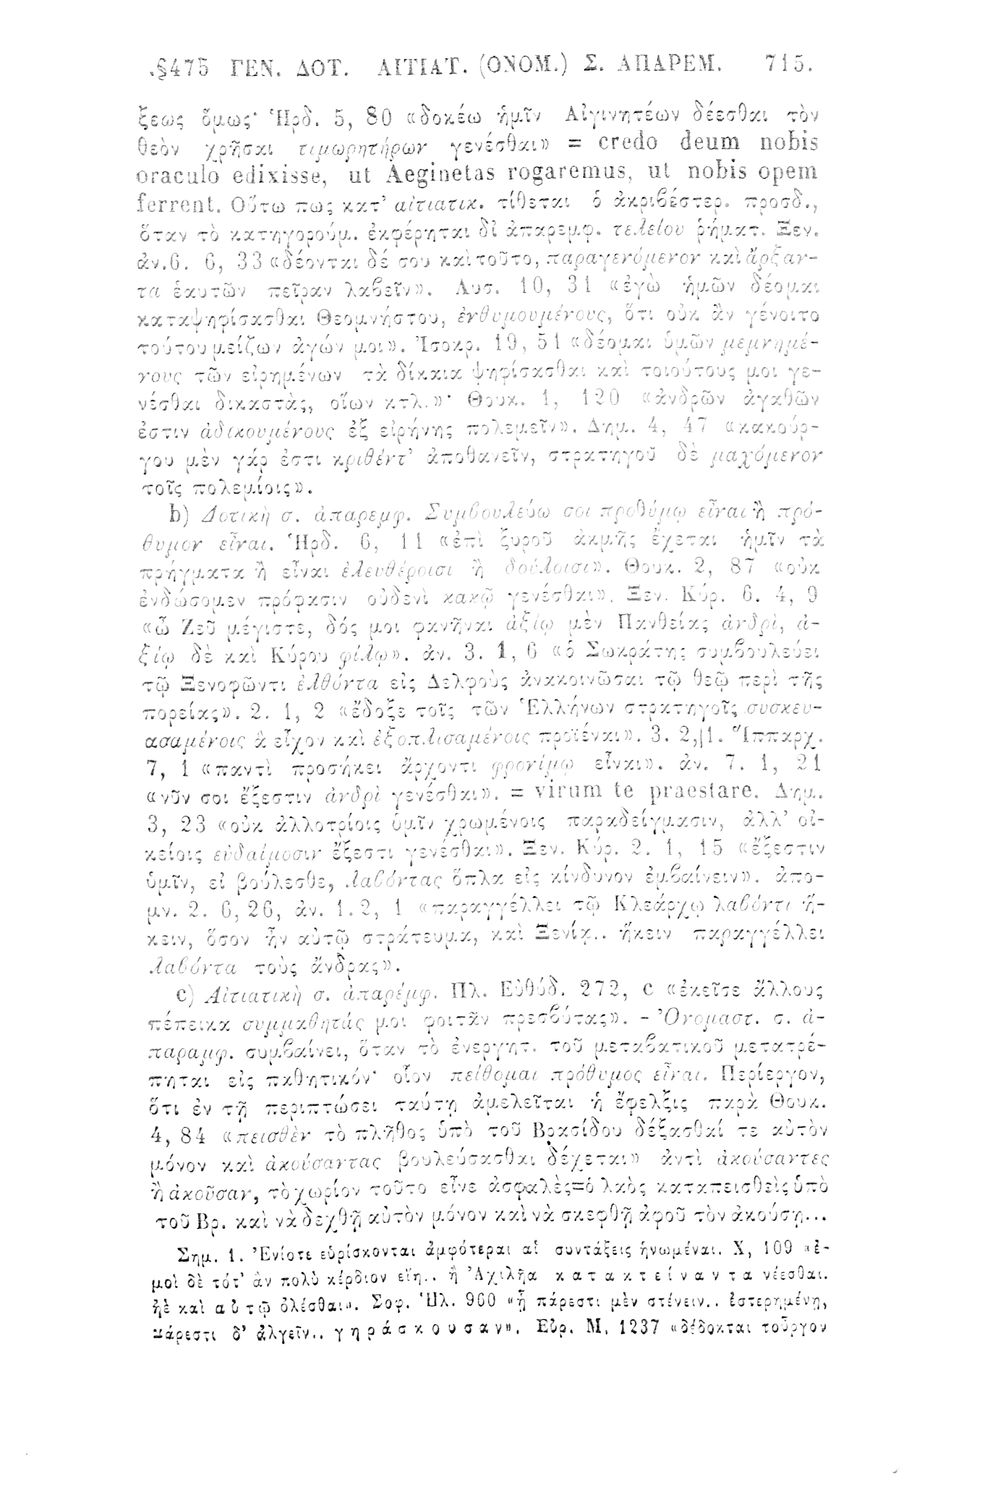 §475 ΓΕΝ. ΔΟΤ. ΑΙΤΙΑΤ. (ΟΝΟΜ.) Σ. ΑΠΑΡΕΜ. 715.
ξεως ὅμως· Ἡρδ. 5, 80 «δοκέω ἡμῖν Αἰγινητέων δέεσθαι τὸν
θεὸν χρῆσαι τιμωρητήρων γενέσθαι» = credo deum nobis
oraculo edixisse, ut Aeginetas rogaremus, ut nobis opem
ferrent. Οὕτω πως κατ’ αἰτιατικ. τίθεται ὁ ἀκριβέστερ. προσδ.,
ὅταν τὸ κατηγορούμ. ἐκφέρηται δι ἀπαρεμφ. τελείου ῥήματ. Ξεν.
ἀν.6. 6, 33 «δέονται δέ σου καὶ τοῦτο, παραγενόμενον καὶ ἄρξαν-
τα ἑαυτῶν πεῖραν λαβεῖν». Λυσ. 10, 31 «ἐγὼ ἡμῶν δέομαι
καταψηφίσασθαι Θεομνήστου, ἐνθυμουμένους, ὅτι οὐκ ἂν γένοιτο
τούτου μείζων ἀγών μοι». Ἰσοκρ. 19, 51 «δέομαι ὑμῶν μεμνημέ-
νους τῶν εἰρημένων τὰ δίκαια ψηφίσασθαι καὶ τοιούτους μοι γε-
νέσθαι δικαστάς, οἵων κτλ.»· Θουκ. 1, 120 «ἀνδρῶν ἀγαθῶν
ἐστιν ἀδικουμένους ἐξ εἰρήνης πολεμεῖν». Δημ. 4, 47 «κακούρ-
γου μὲν γάρ ἐστι κριθέντ’ ἀποθανεῖν, στρατηγοῦ δὲ μαχόμενον
τοῖς πολεμίοις».
b) Δοτικὴ σ. ἀπαρεμφ. Συμβουλεύω σοι προθύμῳ εἶναι ἢ πρό-
θυμον εἶναι. Ἡρδ. 6, 11 «ἐπὶ ξυροῦ ἀκμῆς ἔχεται ἡμῖν τὰ
πρήγματα ἢ εἶναι ἐλευθέροισι ἢ δούλοισι». Θουκ. 2, 87 «οὐκ
ἐνδώσομεν πρόφασιν οὐδενὶ κακῷ γενέσθαι». Ξεν. Κύρ. 6. 4, 9
«ὦ Ζεῦ μέγιστε, δός μοι φανῆναι ἀξίῳ μὲν Πανθείας ἀνδρὶ, ἀ-
ξίῳ δὲ καὶ Κύρου φίλῳ». ἀν. 3. 1, 6 «ὁ Σωκράτης συμβουλεύει
τῷ Ξενοφῶντι ἐλθόντα εἰς Δελφοὺς ἀνακοινῶσαι τῷ θεῷ περὶ τῆς
πορείας». 2. 1, 2 «ἔδοξε τοῖς τῶν Ἑλλήνων στρατηγοῖς συσκευ-
ασαμένοις ἃ εἶχον καὶ ἐξοπλισαμένοις προϊέναι». 3. 2, 1. Ἱππαρχ.
7, 1 «παντὶ προσήκει ἄρχοντι φρονίμῳ εἶναι». ἀν. 7. 1, 21
«νῦν σοι ἔξεστιν ἀνδρὶ γενέσθαι». = virum te praestare. Δημ.
3, 23 «οὐκ ἀλλοτρίοις ὑμῖν χρωμένοις παραδείγμασιν, ἀλλ’ οἰ-
κείοις εὐδαίμοσιν ἔξεστι γενέσθαι». Ξεν. Κύρ. 2. 1, 15 «ἔξεστιν
ὑμῖν, εἰ βούλεσθε, λαβόντας ὅπλα εἰς κίνδυνον ἐμβαίνειν». ἀπο-
μν. 2. 6, 26, ἀν. 1. 2, 1 «παραγγέλλει τῷ Κλεάρχῳ λαβόντι ἥ-
κειν, ὅσον ἦν αὐτῷ στράτευμα, καὶ Ξενίᾳ.. ἥκειν παραγγέλλει
λαβόντα τοὺς ἄνδρας».
c) Αἰτιατικὴ σ. ἀπαρέμφ. Πλ. Εὐθύδ. 272, c «ἐκεῖσε ἄλλους
πέπεικα συμμαθητάς μοι φοιτᾶν πρεσβύτας». - Ὀνομαστ. σ. ἀ-
παραμφ. συμβαίνει, ὅταν τὸ ἐνεργητ. τοῦ μεταβατικοῦ μετατρέ-
πηται εἰς παθητικόν· οἷον πείθομαι πρόθυμος εἶναι. Περίεργον,
ὅτι ἐν τῇ περιπτώσει ταύτῃ ἀμελεῖται ἡ ἕφελξις παρὰ Θουκ.
4, 84 «πεισθὲν τὸ πλῆθος ὑπὸ τοῦ Βρασίδου δέξασθαί τε αὐτὸν
μόνον καὶ ἀκούσαντας βουλεύσασθαι δέχεται» ἀντὶ ἀκούσαντες
ἢ ἀκοῦσαν, τὸ χωρίον τοῦτο εἶνε ἀσφαλὲς=ὁ λαὸς καταπεισθεὶς ὑπὸ
τοῦ Βρ. καὶ νὰ δεχθῇ αὐτὸν μόνον καὶ νὰ σκεφθῇ ἀφοῦ τὸν ἀκούσῃ...
Σημ. 1. Ἐνίοτε εὑρίσκονται ἀμφότεραι αἱ συντάξεις ἡνωμέναι. Χ, 109 «ἐ-
μοὶ δὲ τότ’ ἂν πολὺ κέρδιον εἴη.. ἢ Ἀχιλῆα κατακτείναντα νέεσθαι.
ἠὲ καὶ αὐτῷ ὀλέσθαι». Σοφ. Ἠλ. 960 «ᾗ πάρεστι μὲν στένειν.. ἐστερημένῃ,
πάρεστι δ’ ἀλγεῖν.. γηράσκουσαν». Εὐρ. Μ. 1237 «δέδοκται τοὔργον